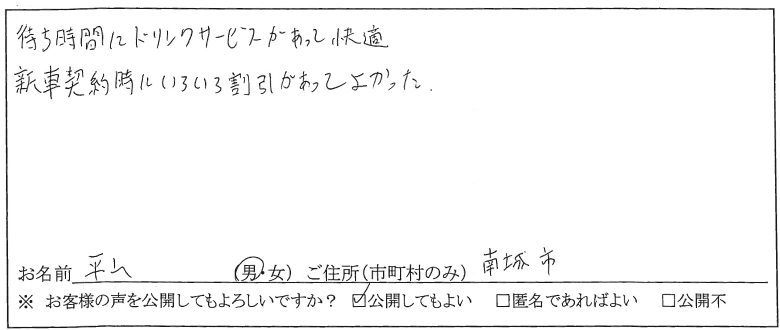 待ち時間にドリンクサービスがあって快適
新車契約時にいろいろ割引があってよかった.
お名前 平山 (男・女) ご住所(市町村のみ) 南城市
※ お客様の声を公開してもよろしいですか? ☑公開してもよい □匿名であればよい □公開不